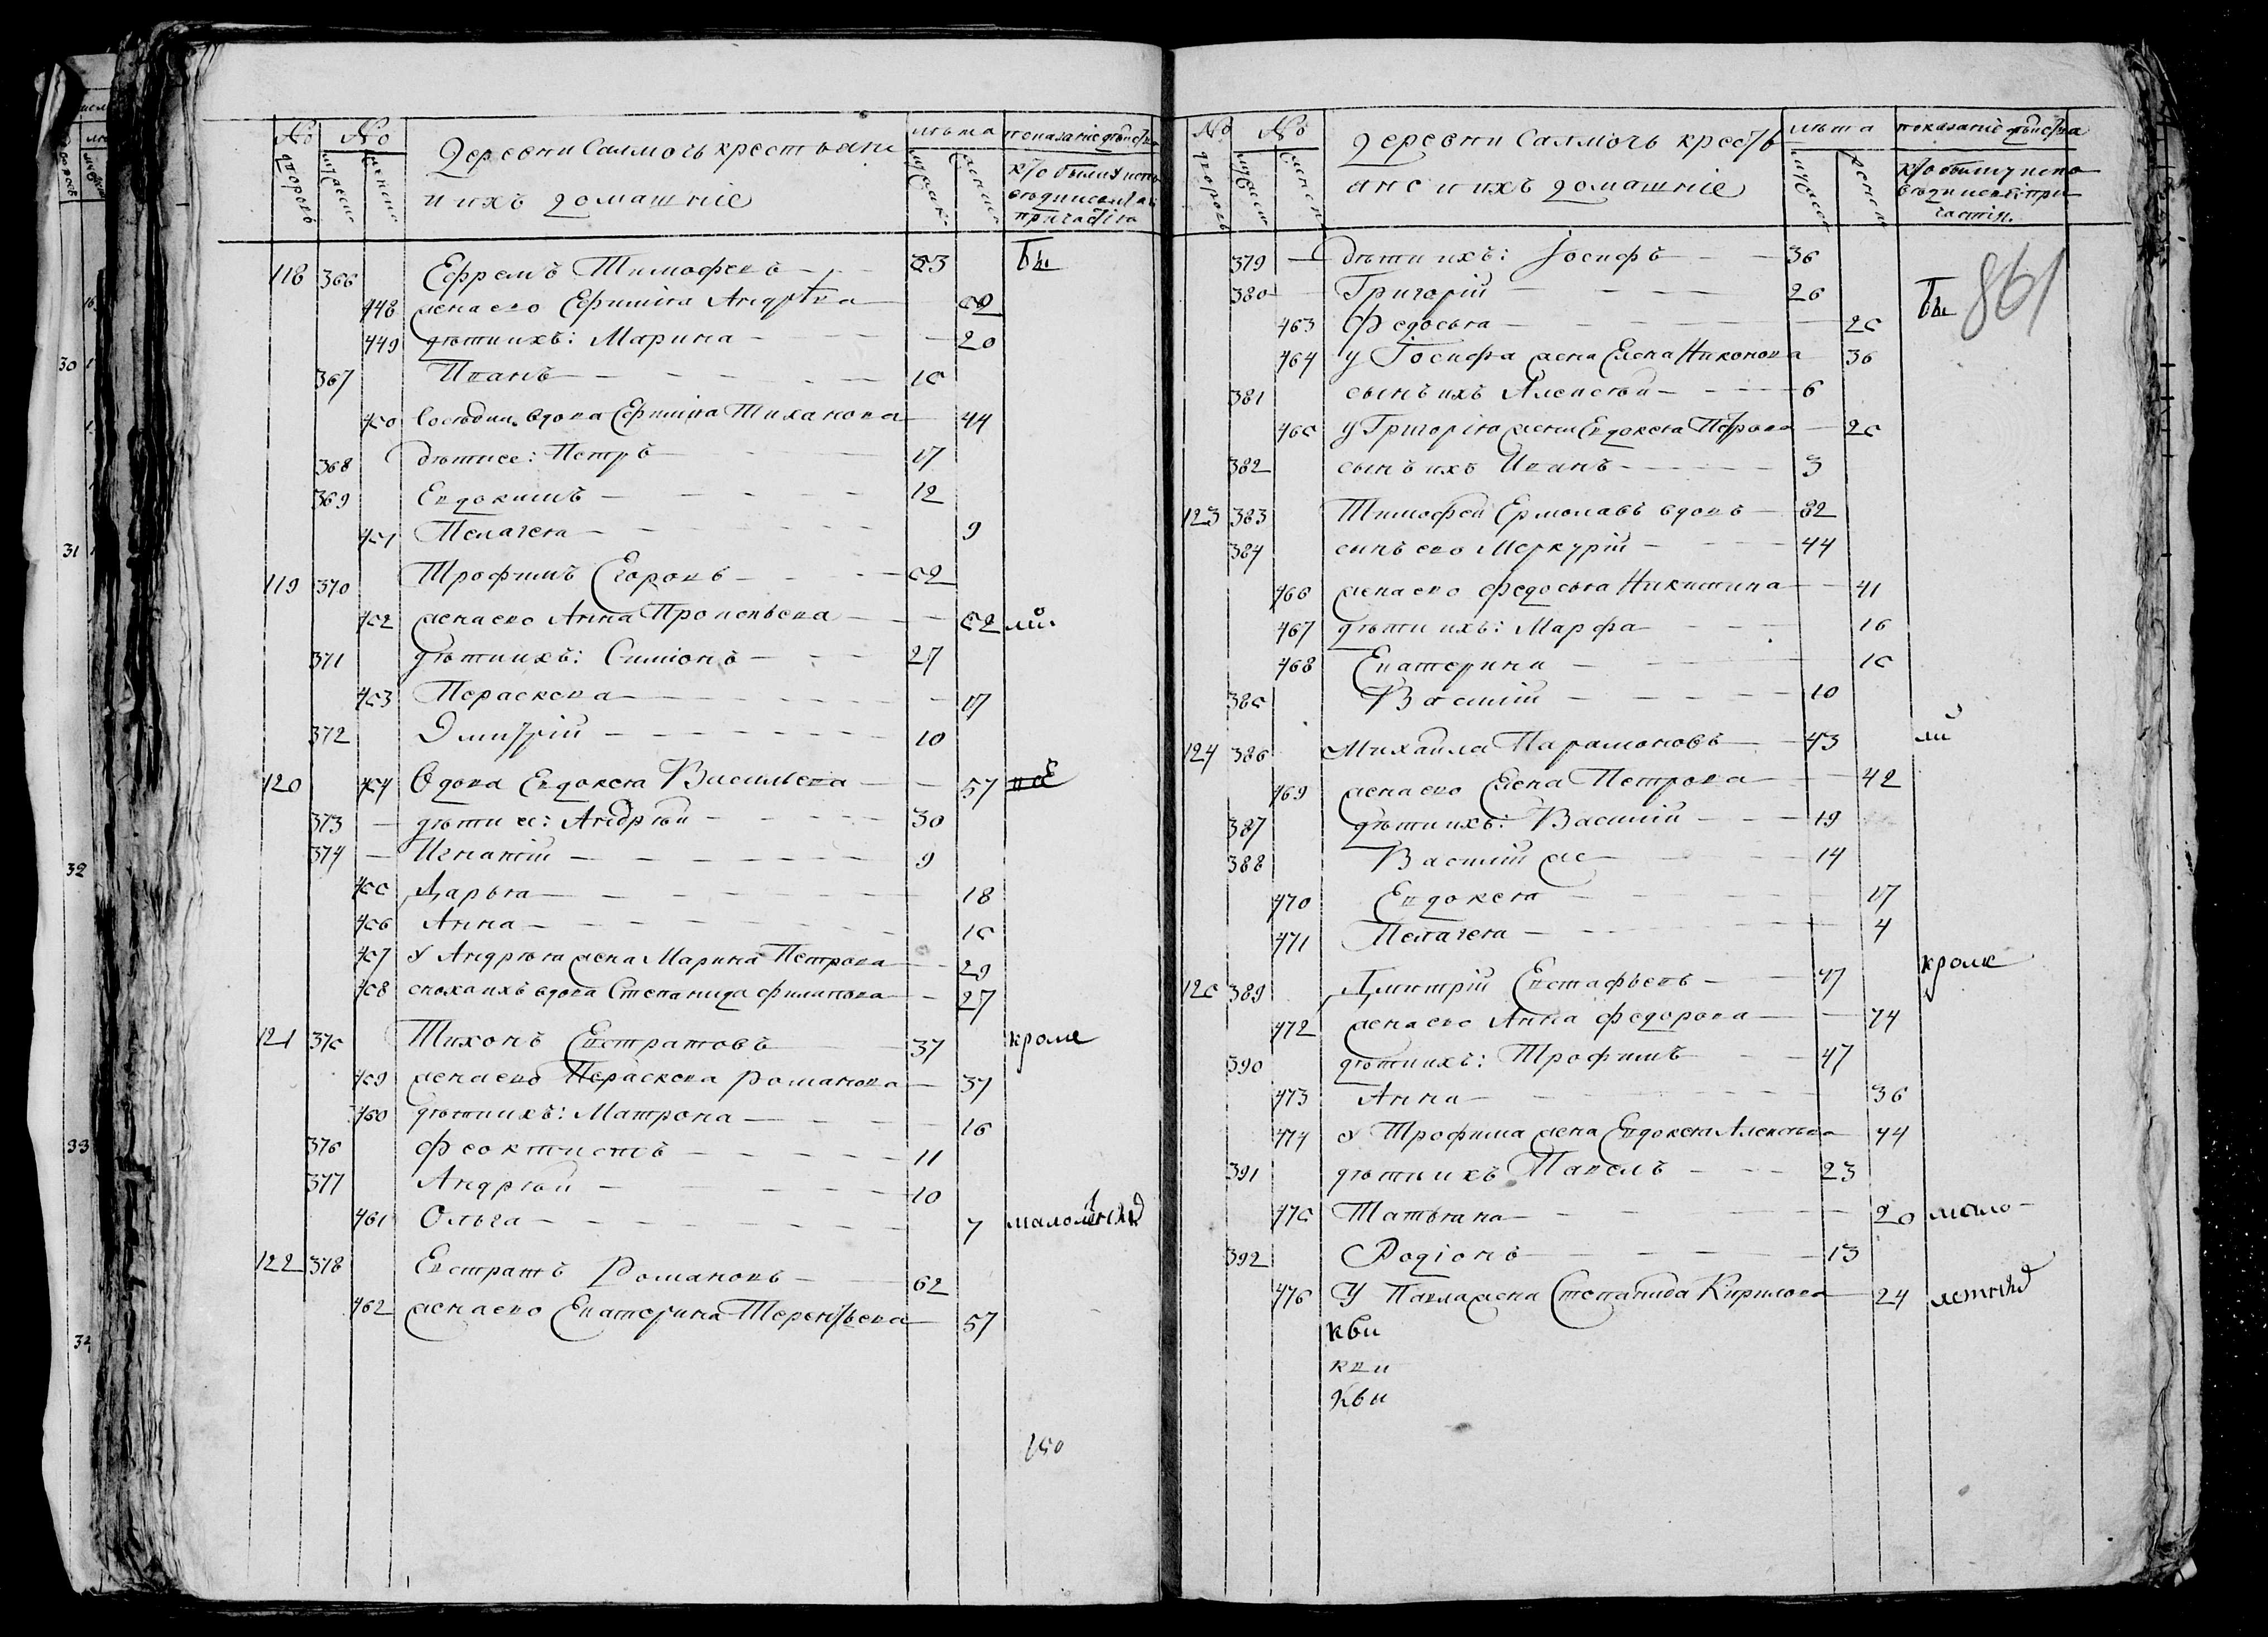 № дворовъ № мужеска женска Деревни Салмочь крестьяне и ихъ домашние лѣта мужска женска показание действа кто былъ у исповѣди и святаго причастия
118 366 Ефремъ Тимофеевъ 53 бы
448 жена ево Ефимия Андреева 50
449 дети ихъ: Марина 20
367 Иванъ 15
450 соседка вдова Ефимия Тиханова 44
368 дети ее: Петръ 17
369 Евдокимъ 12
451 Пелагея 9
119 370 Трофимъ Егоровъ 52
452 жена ево Анна Прокопьева 52 ли
371 дети ихъ: Симионъ 27
453 Параскева 17
372 Димитрий 10
120 454 Вдова Евдокея Васильева 57 всѣ
373 дети ее: Андрей 30
374 Игнатий 9
455 Дарья 18
456 Анна 15
457 У Андрея жена Марина Петрова 29
458 сноха ихъ вдова Степанида Филипова 27
121 375 Тихонъ Евстратовъ 37 кроме
459 жена ево Параскева Романова 37
460 дети ихъ: Матрона 16
376 Феоктистъ 11
377 Андрей 10
461 Ольга 7 малолетных
122 378 Евстратъ Романовъ 62
462 жена ево Екатерина Терентьева 57
150
№ дворовъ № мужеска женска Деревни Салмочь крестьяне и ихъ домашние лѣта мужеска женска показание действа кто былъ у исповеди и святаго причастия
861
379 дети ихъ: Иосифъ 36
380 Григорий 26 бы
463 Федосья 25
464 у Иосифа жена Елена Никонова 36
381 сынъ ихъ Алексей 6
465 у Григория жена Евдокея Петрова 25
382 сынъ ихъ Иванъ 3
123 383 Тимофей Ермолаевъ вдовъ 82
384 сынъ ево Меркурий 44
466 жена ево Федосья Никитина 41
467 дети ихъ: Марфа 16
468 Екатерина 15
385 Василий 10
124 386 Михайла Парамоновъ 43 ли
469 жена ево Елена Петрова 42
387 дети ихъ: Василий 19
388 Василий же 14
470 Евдокея 17
471 Пелагея 4
125 389 Дмитрий Евстафьевъ 77 кроме
472 жена ево Анна Федорова 74
390 дети ихъ: Трофимъ 47
473 Анна 36
474 У Трофима жена Евдокея Алексеева 44
391 дети ихъ Павелъ 23
475 Татьяна 20 мало-
392 Родионъ 13
476 У Павла жена Степанида Кирилова 24 летных
кви
кви
кви